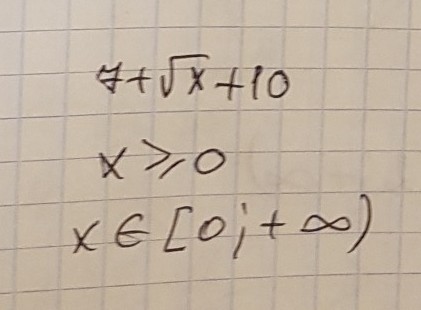 7+√x+10
x⩾0
x∈[0;+∞)